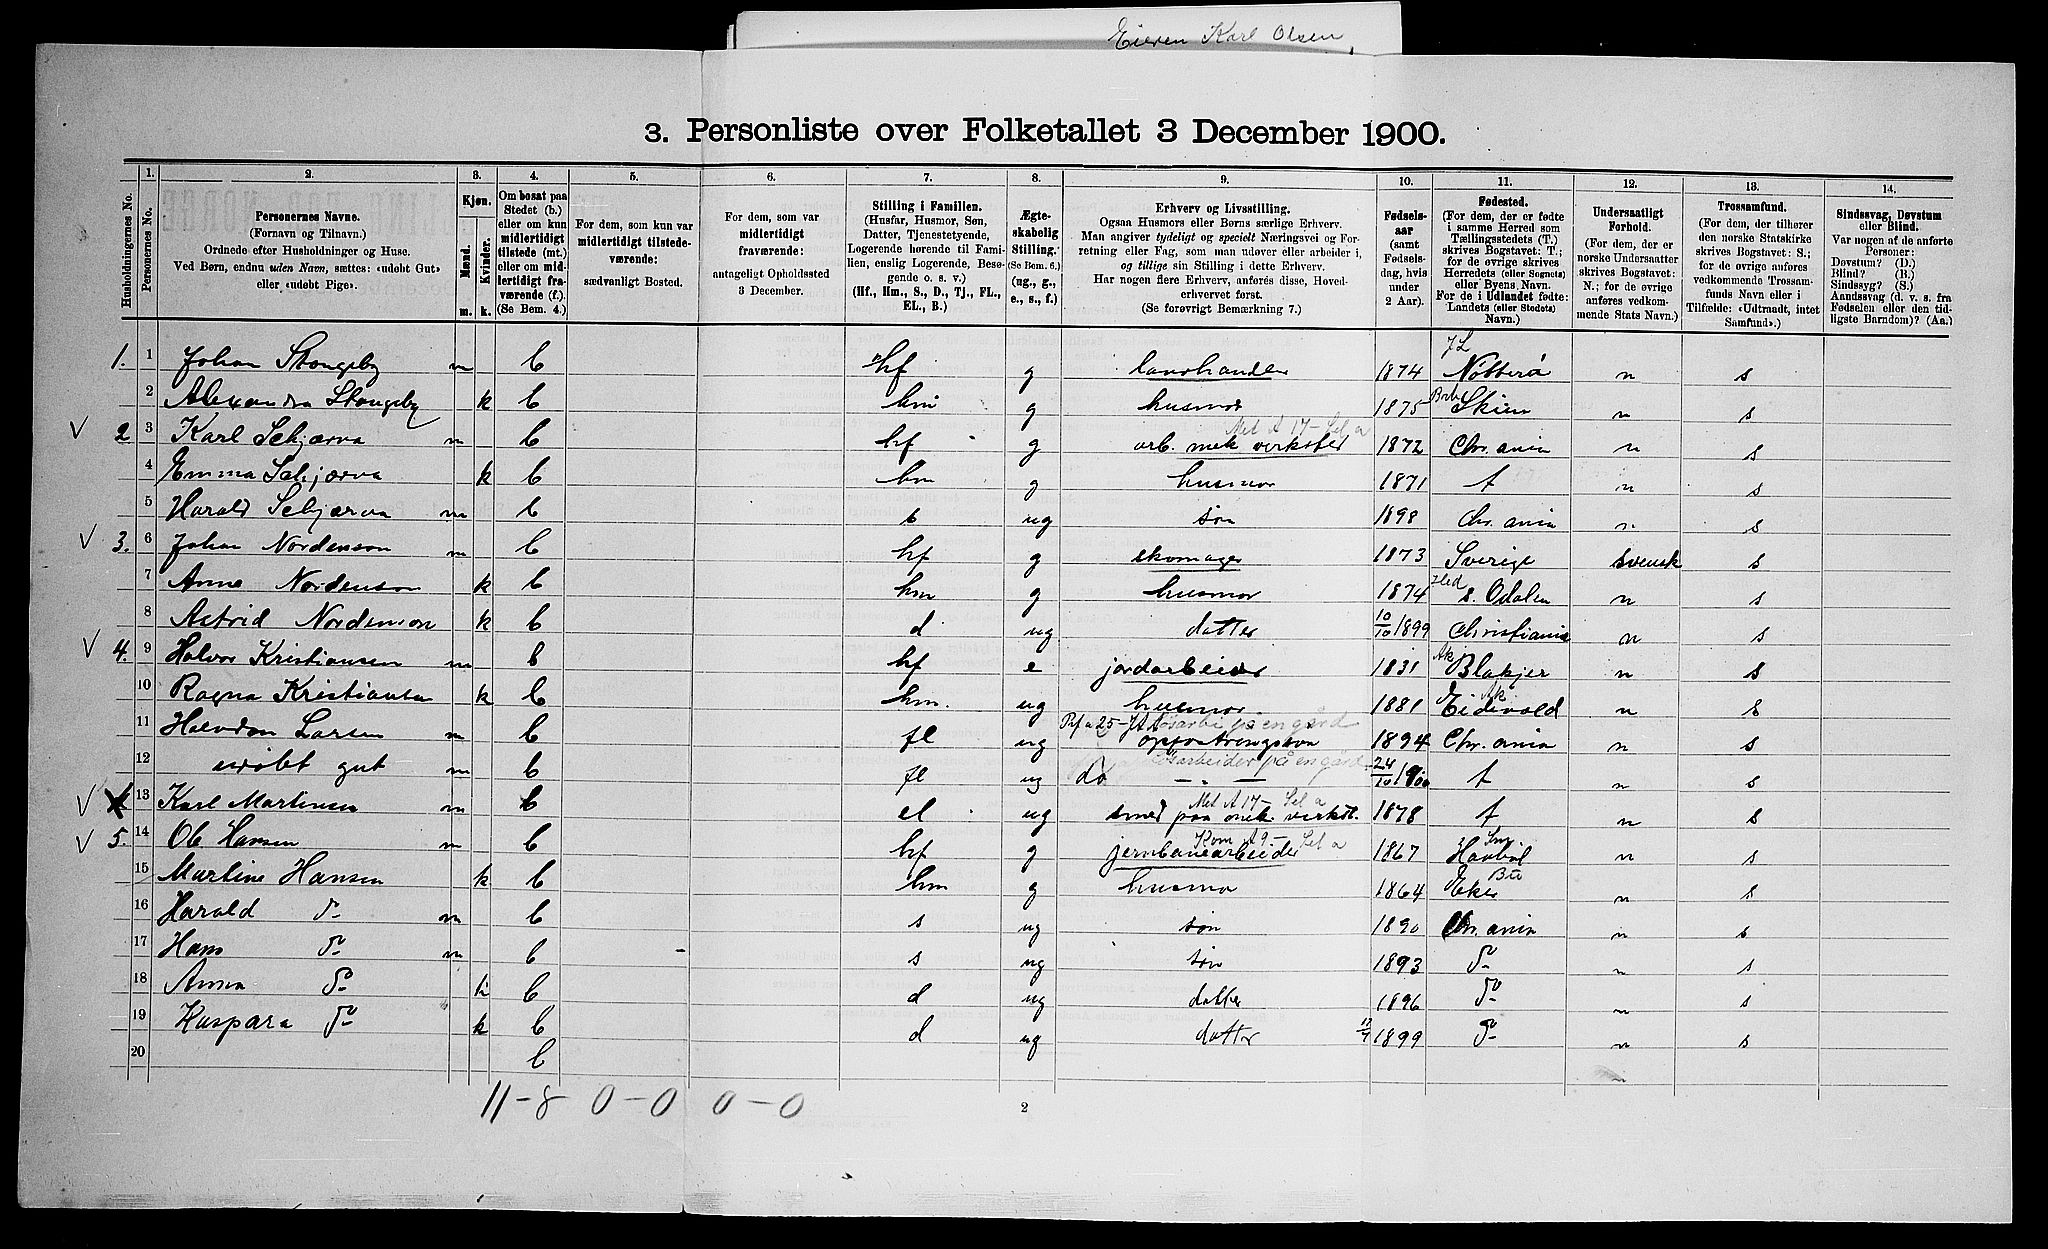 Eieren Karl Olsen
3. Personliste over Folketallet 3 December 1900.
1. 2. 3. 4. 5. 6. 7. 8. 9. 10. 11. 12. 13. 14.
Husholdningernes No.
Personernes No.
Personernes Navne.
(Fornavn og Tilnavn.)
Ordnede efter Husholdninger og Huse.
Ved Børn, endnu uden Navn, sættes: «udøbt Gut»
eller «udøbt Pige».
Kjøn.
Mænd.
Kvinder.
m. k.
Om bosat paa
Stedet (b.)
eller om kun
midlertidigt
tilstede (mt.)
eller om mid-
lertidigt fra-
værende (f.)
(Se Bem. 4.)
For dem, som kun var
midlertidigt tilstede-
værende:
sædvanligt Bosted.
For dem, som var
midlertidigt
fraværende:
antageligt Opholdssted
3 December.
Stilling i Familien.
(Husfar, Husmor, Søn,
Datter, Tjenestetyende,
Logerende hørende til Fami-
lien, enslig Logerende, Besø-
gende o. s. v.)
(Hf., Hm., S., D., Tj., FL.,
EL., B.)
Ægte-
skabelig
Stilling.
(Se Bem. 6.)
(ug., g.,
e., s., f.)
Erhverv og Livsstilling.
Ogsaa Husmors eller Børns særlige Erhverv.
Man angiver tydeligt og specielt Næringsvei og For-
retning eller Fag, som man udøver eller arbeider i,
og tillige sin Stilling i dette Erhverv.
Har nogen flere Erhverv, anføres disse, Hoved-
erhvervet først.
(Se forøvrigt Bemærkning 7.)
Fødsels-
aar
(samt
Fødsels-
dag, hvis
under
2 Aar).
Fødested.
(For dem, der er fødte
i samme Herred som
Tællingsstedets (T.)
skrives Bogstavet: T.;
for de øvrige skrives
Herredets (eller Sognets)
eller Byens Navn.
For de i Udlandet fødte:
Landets (eller Stedets)
Navn.)
Undersaatligt
Forhold.
(For dem, der er
norske Undersaatter
skrives Bogstavet:
N.; for de øvrige
anføres vedkom-
mende Stats Navn.)
Trossamfund.
(For dem, der tilhører
den norske Statskirke
skrives Bogstavet: S.;
for de øvrige anføres
vedkommende Trossam-
funds Navn eller i
Tilfælde: «Udtraadt, intet
Samfund».)
Sindssvag, Døvstum
eller Blind.
Var nogen af de anførte
Personer:
Døvstum? (D.)
Blind? (B.)
Sindssyg? (S.)
Aandssvag (d. v. s. fra
Fødselen eller den tid-
ligste Barndom)? (Aa.)
1. 1 Johan Stongeby m b hf g landhandler 1874 JL Nøtterø n s
2 Alexandra Stongeby k b hm g husmor 1875 Brb Skien n s
2 3 Karl Schjærva m b hf g arb. mek verksted Met A 17 - Sel a 1872 Chr.ania n s
4 Emma Schjærva k b hm g husmor 1871 t n s
5 Harald Schjærva m b s ug søn 1898 Chr.ania n s
3. 6 Johan Nordenson m b hf g skomager 1873 Sverige svensk s
7 Anna Nordenson k b hm g husmor 1874 Hed s. Odalen n s
8 Astrid Nordenson k b d ug datter 10/10 1899 Christiania n s
4. 9 Halvor Kristiansen m b hf e jordarbeider 1831 Ak Blakjer n s
10 Ragna Kristiansen k b hm. ug husmor 1881 Ak Eidsvold n s
11 Halvdan Larsen m b fl ug opfostringssøn 1894 Chr.ania n s
12 udøbt gut m b fl ug do - „ - 24/10 1900 t n s
13 Karl Martinsen m b el ug smed paa mek. verkst. Met A 17 - Sel a 1878 t n s
5. 14 Ole Hansen m b hf g jernbanearbeider Kom A 9 - Sel a 1867 Sm Haabøl n s
15 Martine Hansen k b hm g husmor 1864 Eker Bu n s
16 Harald do m b s ug søn 1890 Chr.ania n s
17 Hans do m b s ug søn 1893 do n s
18 Anna do k b d ug datter 1896 do n s
19 Kaspara do k b d ug datter 1899 do n s
20 b n
11 - 8 0 - 0 0 - 0
2